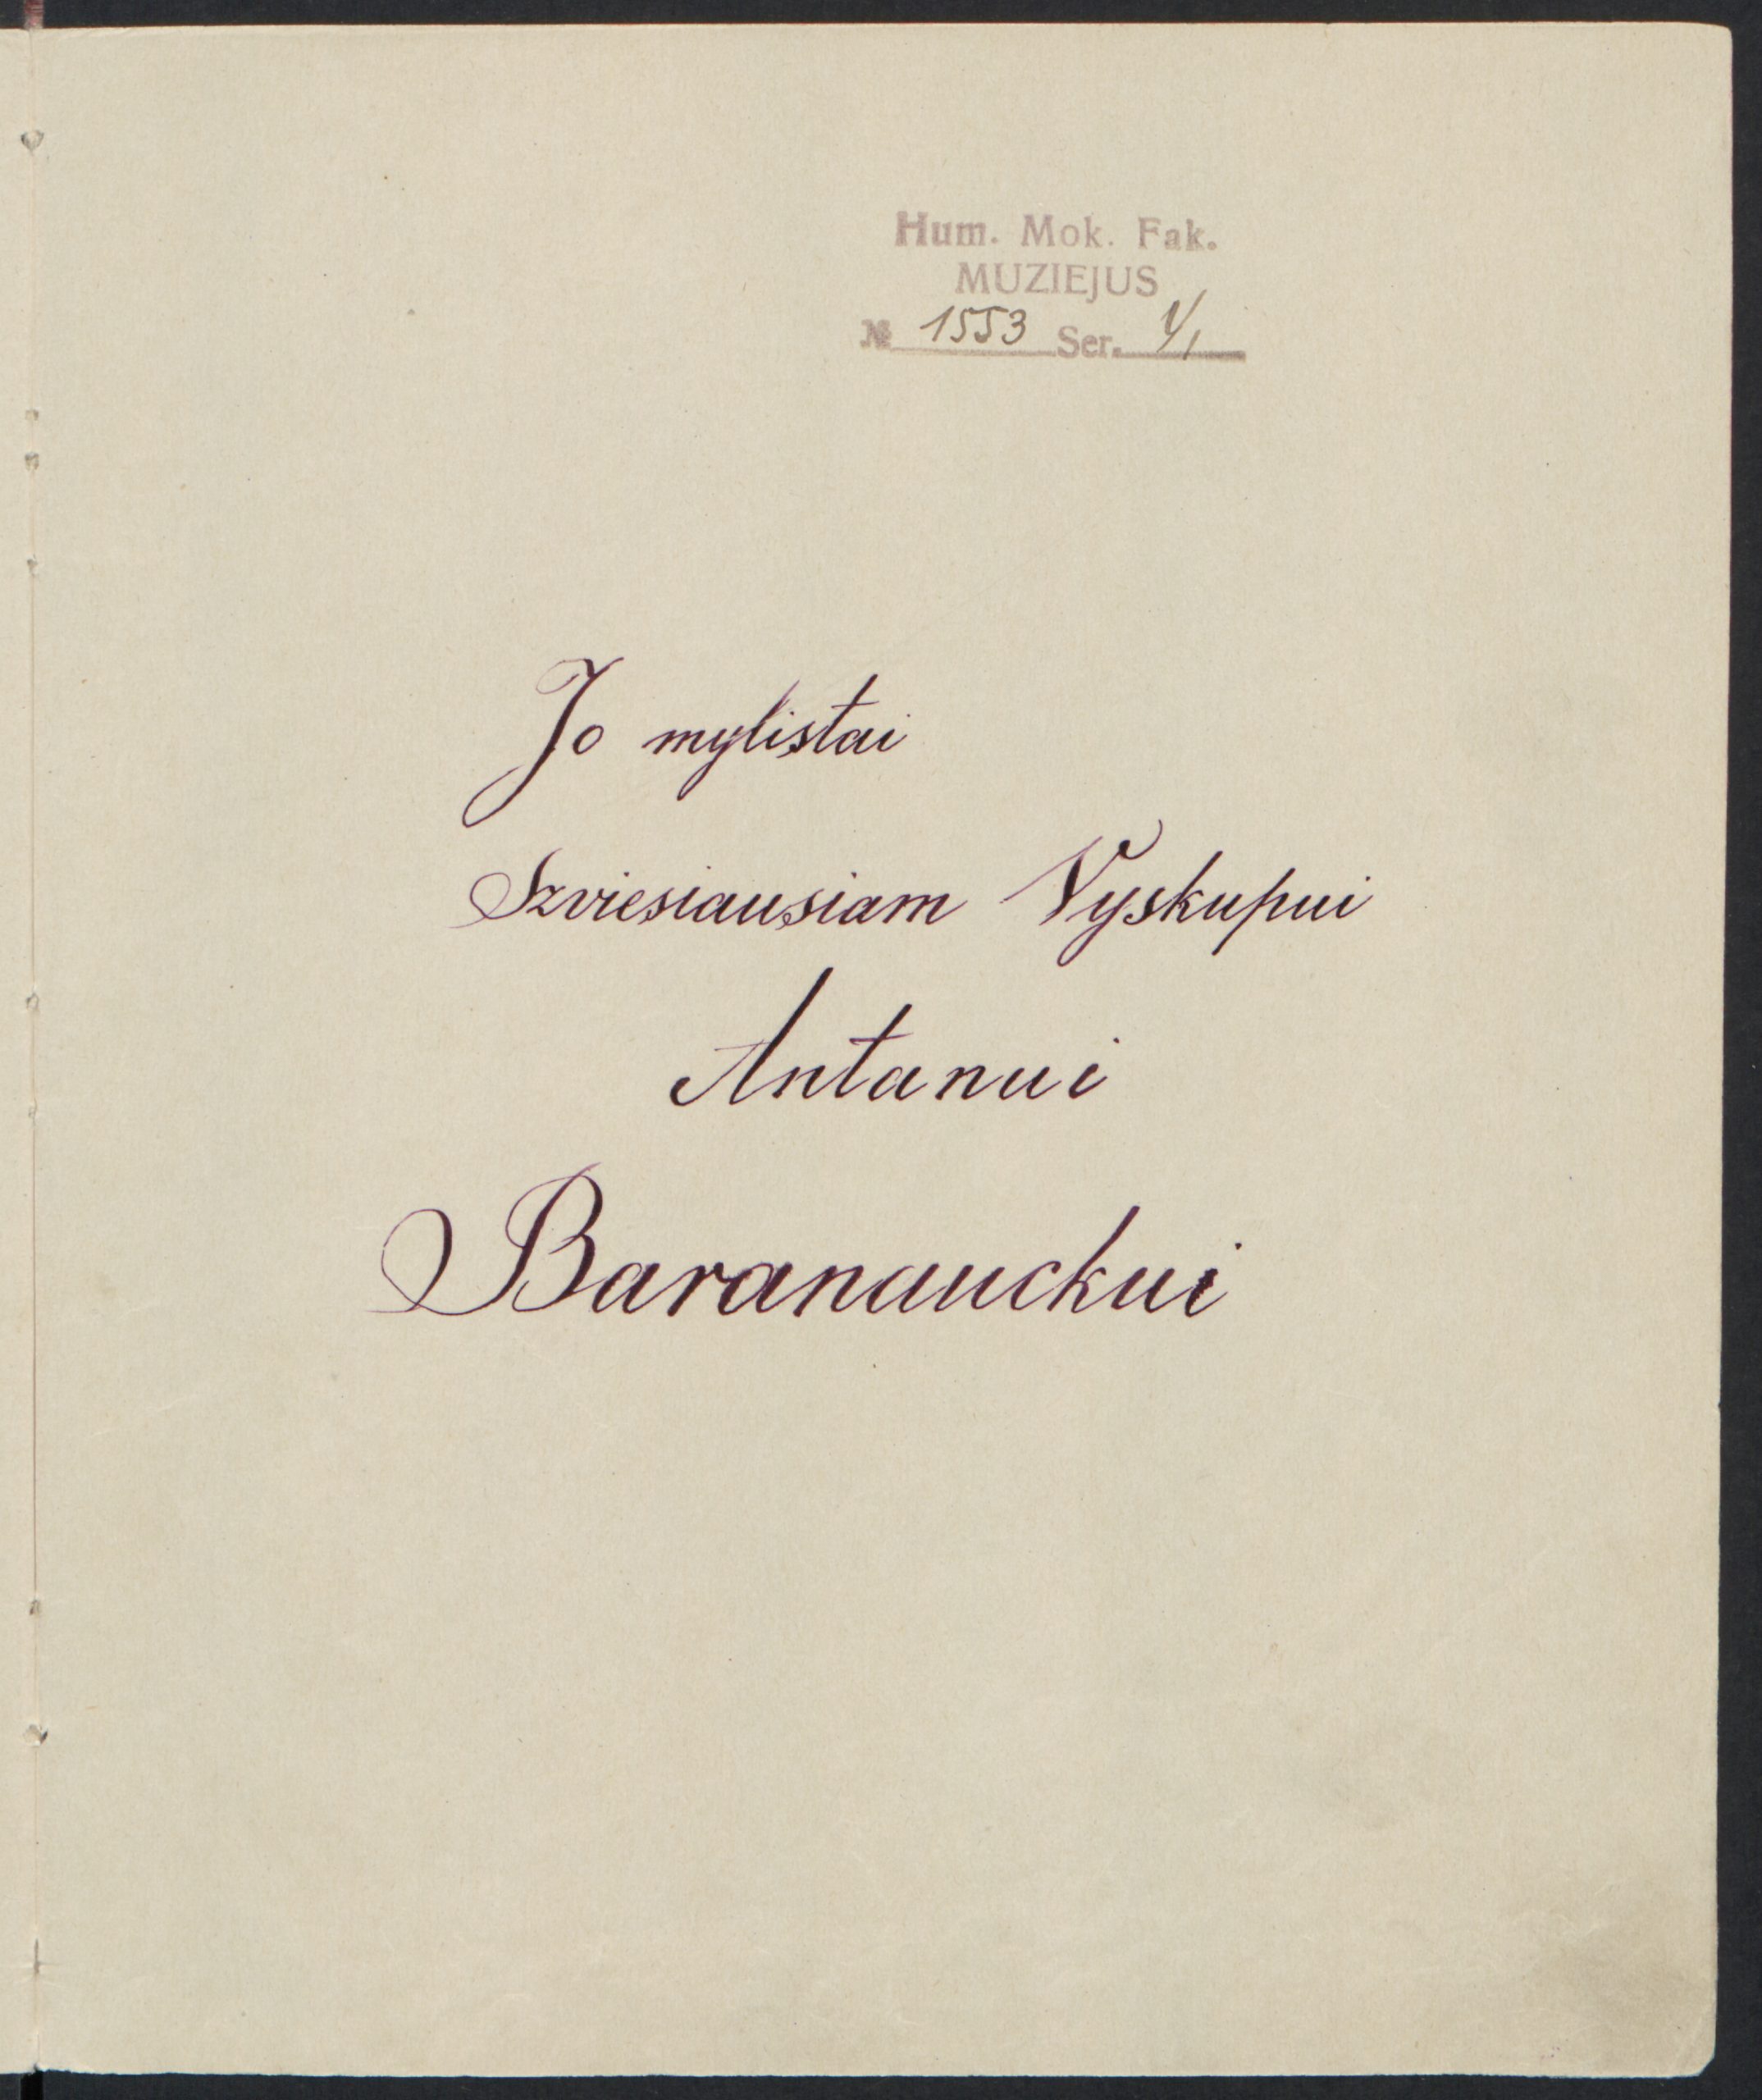 Hum. Mok. Fak.
MUZIEJUS
№ 1553 Ser. V/1
Jo mylistai
Szviesiausiam Vyskupui
Antanui
Baranauckui